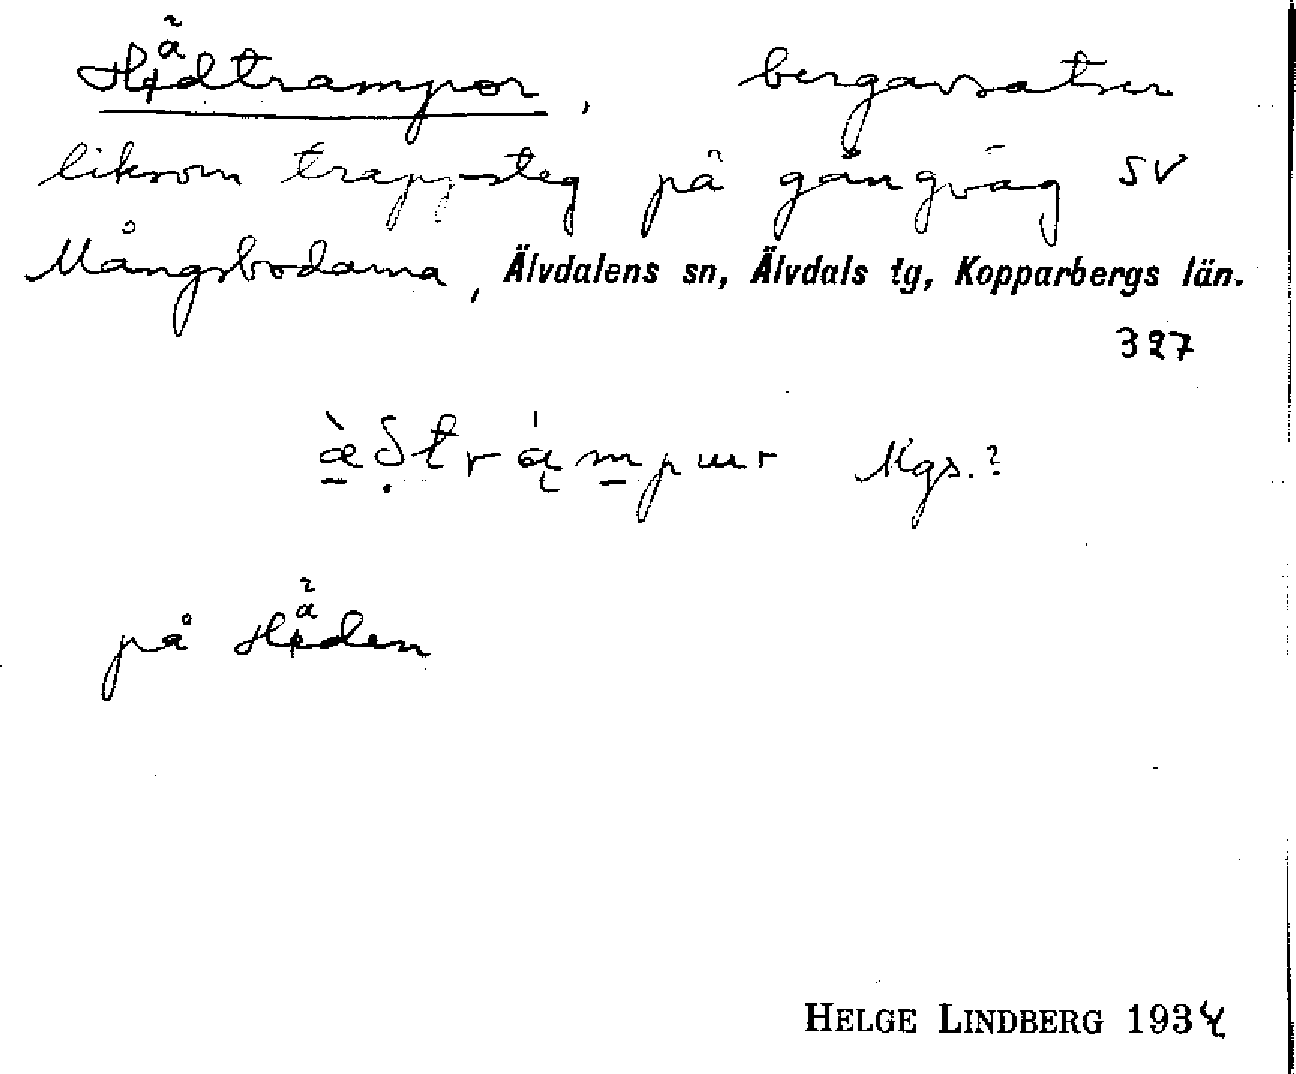 Hädtrampor, bergavsatser
liksom trappsteg på gångväg SV
Mångsbodarna, Älvdalens sn, Älvdals tg, Kopparbergs län.
327
æ̀ðtrą́mpuur Mgs.?
på Häden
HELGE LINDBERG 1934